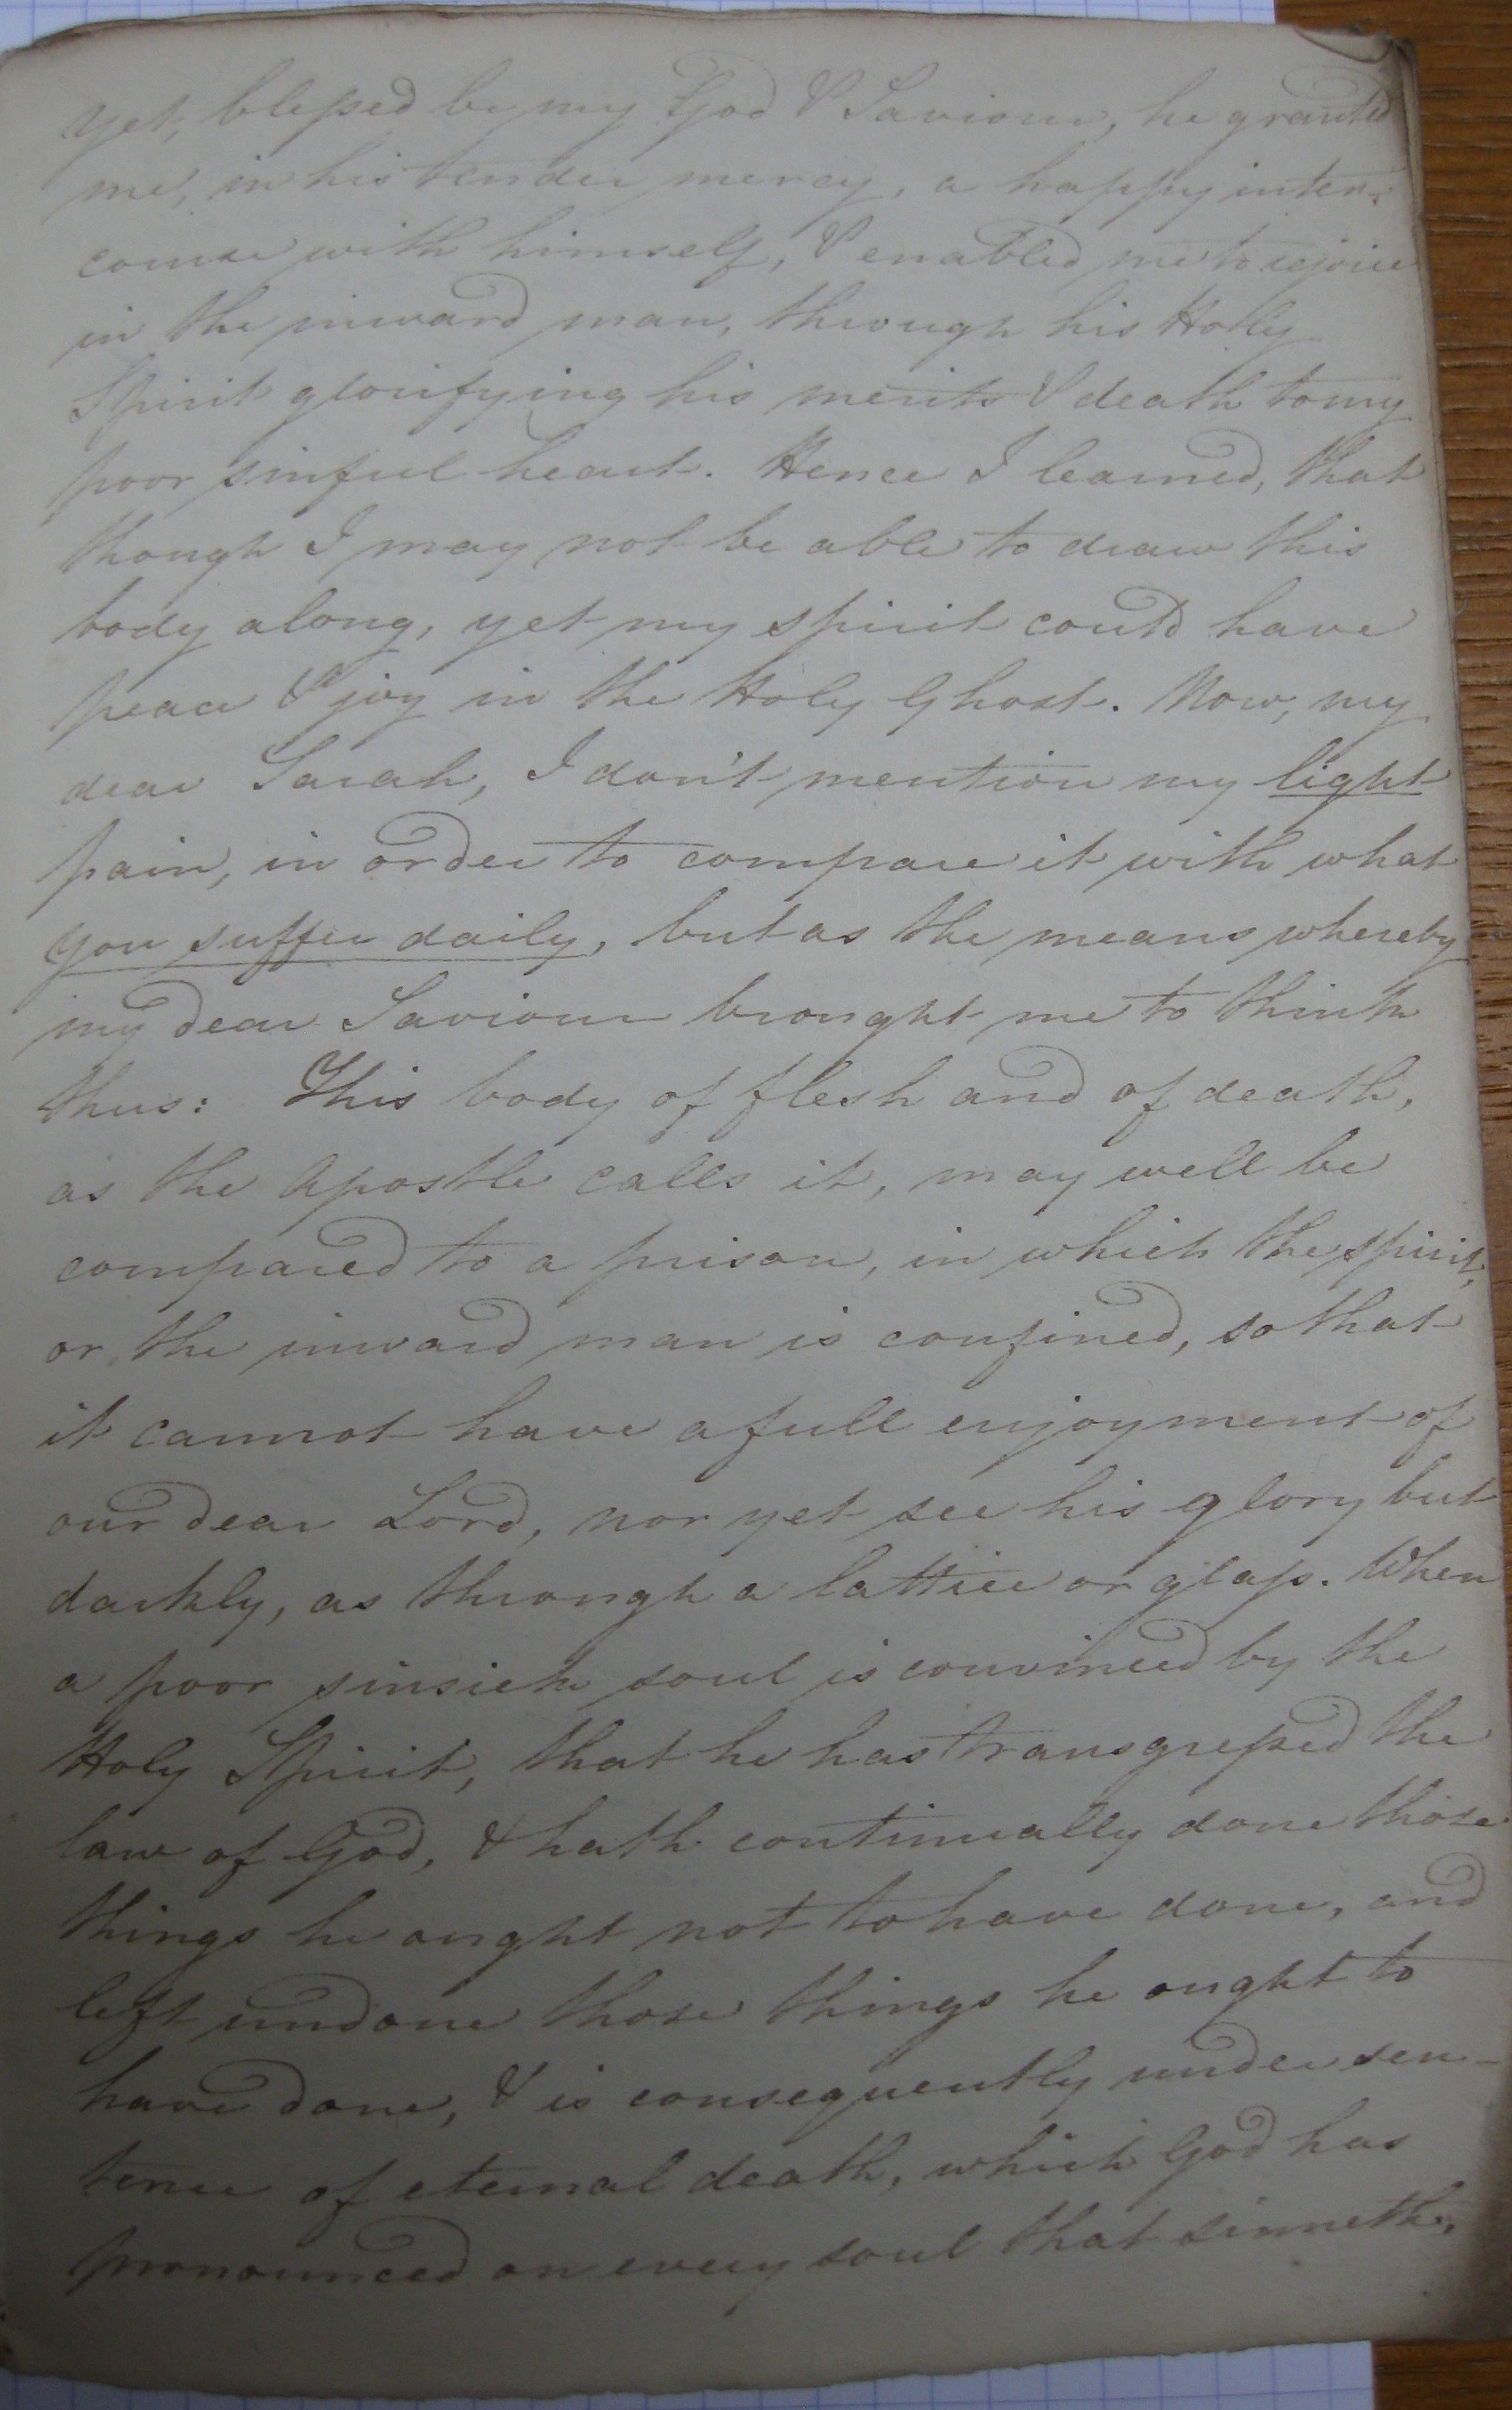 yet, blessed be my God & Saviour, he granted
me, in his tender mercy, a happy inter-
course with himself, & enabled me to rejoice
in the inward man, through his Holy
Spirit glorifying his merits & death to my
poor sinful heart. Hence I learned, that
though I may not be able to draw this
body along, yet my spirit could have
peace & joy in the Holy Ghost. Now, my
dear Sarah, I don't mention my light
pain, in order to compare it with what
you suffer daily, but as the means whereby
my dear Saviour brought me to think
thus: This body of flesh and of death,
as the Apostle calls it, may well be
compared to a prison, in which the spirit,
or the inward man is confined, so that
it cannot have a full enjoyment of
our dear Lord, nor yet see his glory but
darkly, as through a lattice or glass. When
a poor sinsick soul is convinced by the
Holy Spirit, that he has transgressed the
law of God, & hath continually done those
things he ought not to have done, and
left undone those things he ought to
have done, & is consequently under sen-
tence of eternal death, which God has
pronounced on every soul that sinneth,